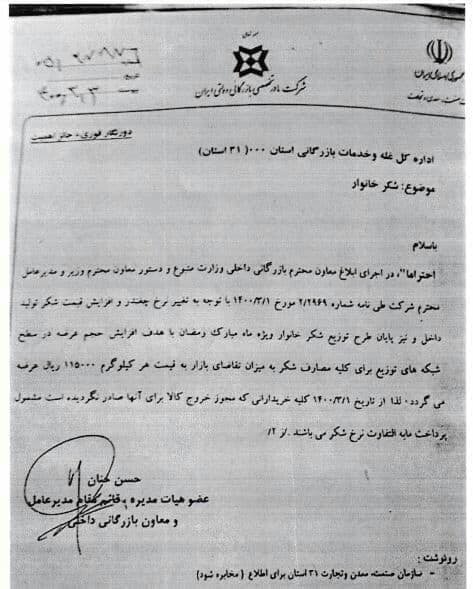 شرکت مادر تخصصی بازرگانی دولتی ایران
دورنگار فوری - حائز اهمیت
اداره کل غله وخدمات بازرگانی استان ۰۰۰( ۳۱ استان)
موضوع: شکر خانوار
باسلام
احتراما"، در اجرای ابلاغ معاون محترم بازرگانی داخلی وزارت متبوع و دستور معاون محترم وزیر و مدیرعامل
محترم شرکت طی نامه شماره ۲/۲۹۶۹ مورخ ۱۴۰۰/۳/۱ با توجه به تغییر نرخ چغندر و افزایش قیمت شکر تولید
داخل و نیز پایان طرح توزیع شکر خانوار ویژه ماه مبارک رمضان با هدف افزایش حجم عرضه در سطح
شبکه های توزیع برای کلیه مصارف شکر به میزان تقاضای بازار به قیمت هر کیلوگرم ۱۱۵۰۰۰ ریال عرضه
می گردد۰ لذا از تاریخ ۱۴۰۰/۳/۱ کلیه خریدارانی که مجوز خروج کالا برای آنها صادر نگردیده است مشمول
پرداخت مابه التفاوت نرخ شکر می باشند ./ز ۲/
حسن حنان
عضو هیات مدیره و قائم مقام مدیرعامل
و معاون بازرگانی داخلی
رونوشت :
- سازمان صنعت، معدن وتجارت ۳۱ استان برای اطلاع ( مخابره شود)